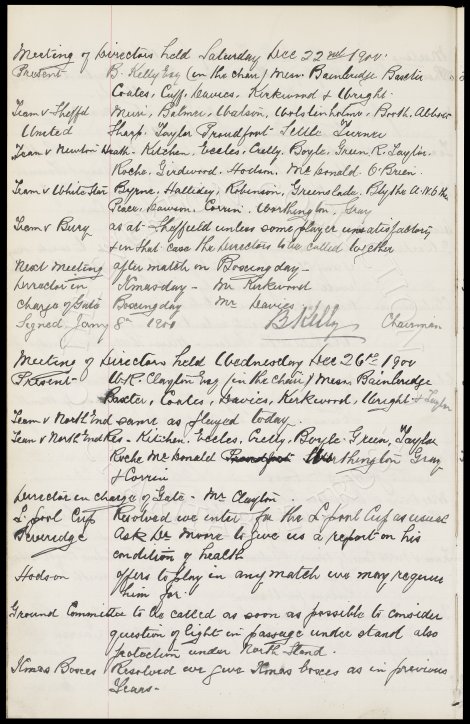 Meeting of Directors held Saturday Dec 22nd 1900.
Present B. Kelly Esq (in the chair) Messrs Bainbridge Baxter
Coates, Cuff, Davies, Kirkwood & Wright.
Team v Sheffd Muir, Balmer, Watson, Wolstenholme, Booth, Abbott
United Sharp, Taylor Proudfoot Settle Turner
Team v Newton Heath - Kitchen, Eccles, Crelly, Boyle, Green, R. Taylor.
Roche, Girdwood, Hodson, McDonald O'Brien.
Team v White Star Byrne, Halliday, Robinson, Greenslade, Blythe
Dawson, Corrin, Worthington, Gray
Team v Bury as at Sheffield unless some player unsatisfactory
in that case the Directors to be called together
Next Meeting after match on Boxing day -
Director in Xmas day - Mr Kirkwood
Charge of Gate Boxing day Mr Davies
Signed Jany 8th 1901 B Kelly Chairman
Meeting of Directors held Wednesday Dec 26th 1900
Present - W.R. Clayton Esq (in the chair) Messrs Bainbridge
Baxter, Coates, Davies, Kirkwood, Wright & Taylor
Team v North End same as played today.
Team v North End Res - Kitchen, Eccles, Crelly, Boyle Green, Taylor
Roche McDonald Proudfoot Worthington Gray
& Corrin
Director in charge of Gate - Mr Clayton.
L'pool Cup Resolved we enter for the L'pool Cup as usual
Ask Dr Moore to give us a report on his
condition of health
Hodson offers to play in any match we may require
him for.
Ground Committee to be called as soon as possible to consider
question of light in passage under stand also
protection under North Stand.
Xmas Boxes Resolved we give Xmas boxes as in previous
Years -